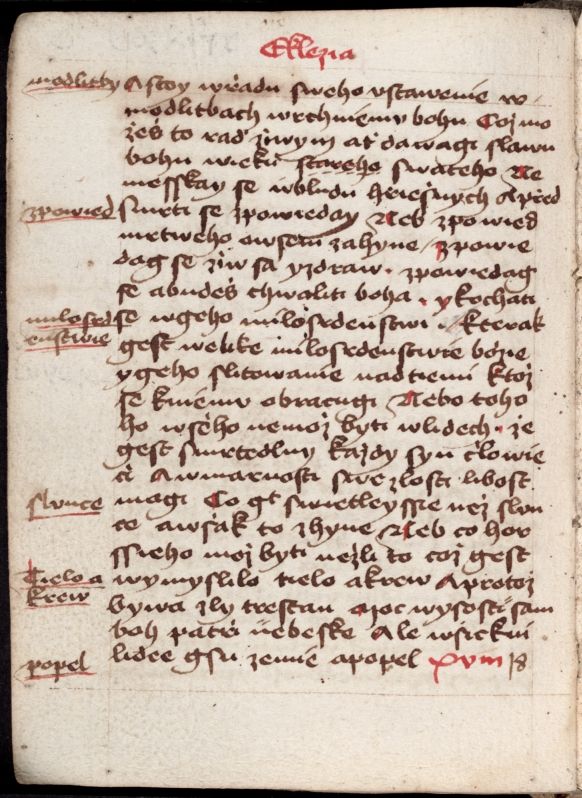 Eklezia
modlitby Astoy wřadu sweho vstawenie w-
modlitbach wrchniemy bohu Cozmo
žeš to rad žiwym at dawagi slawu
bohu wieku stareho swateho Ne
messkay se wbludu hriešnych Apřed
zpowied Smrti se zpowieday Neb zpowied
mrtweho owsem zahyne / zpowie
dag se žiw sa yzdraw . zpowiedag
se abudeš chwaliti boha . ykochati
milosrd se wgeho milosrdenstwi . kterak
enstwie gest welike milosrdenstwie božie
ygeho slitowanie nadtiemi ktož
se kniemu obracugi Nebo toho
ho wseho nemož byti wlidech . že
gest smrtedlny každy syn člowie
či Awmarnosti swe zlosti libost
slunce magi Co gt swietleyssie než slun
ce awšak to zhyne Neb co hor
ssieho mož byti nežli to což gest
Tielo a wymyslilo tielo akrew Aprotož
krew bywa zly trestan moc wysosti sam
boh patří nebeske Ale wsickni
popel lidee gsu zemie apopel xviii 18